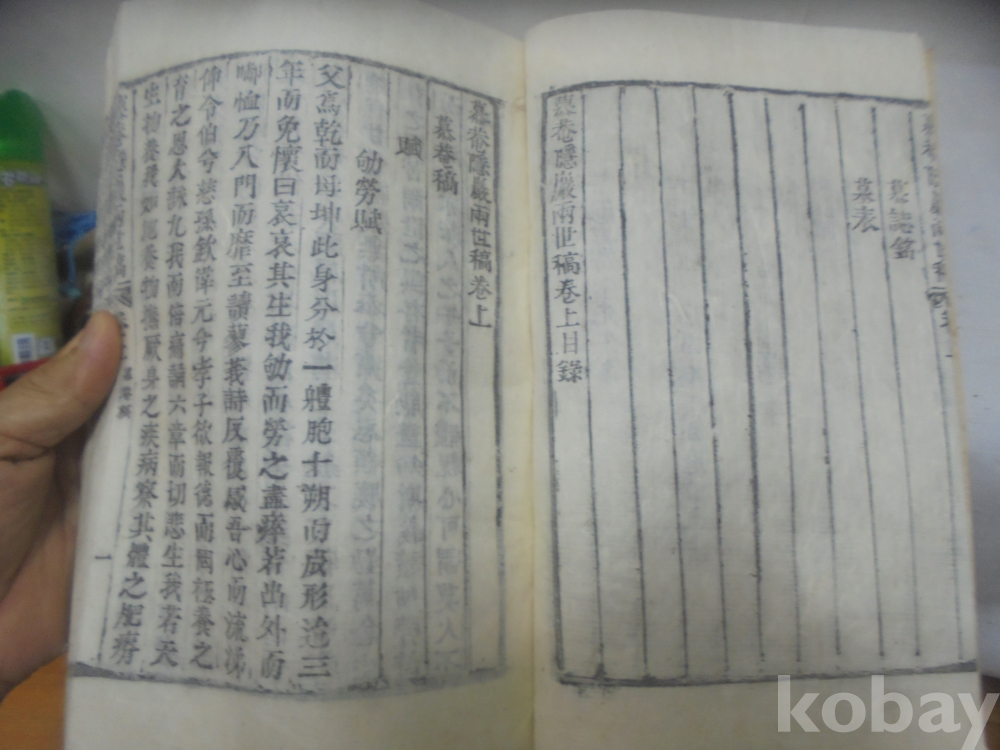 墓誌銘
墓表
慕巷隱巖兩世稿卷上目錄
慕巷隱巖兩世稿卷上
慕巷稿
賦
劬勞賦
父爲乾而母坤此身分於一體胞十朔而成形迨三
年而免懷曰哀哀其生我劬而勞之盡瘁若出外而
啣恤乃入門而靡至讀蓼莪詩反覆感吾心而流涕
伸令伯兮慈孫欽偉元兮孝子欲報德而罔極養之
育之恩大誠九我而倍痛誦六章而切悲生我若天
生物養我如地養物撫厥身之疾病察其軆之肥瘠
一
kobay